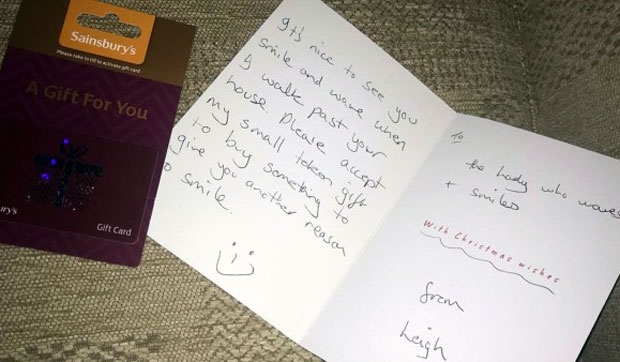 Sainsbury's
Please take to till to activate gift card
A Gift For You
ury's
Gift Card
It's nice to see you
smile and wave when
I walk past your
house. Please accept
my small token gift
to buy something to
give you another reason
to smile.
To
the lady who waves
+ smiles
With Christmas wishes
from
Leigh